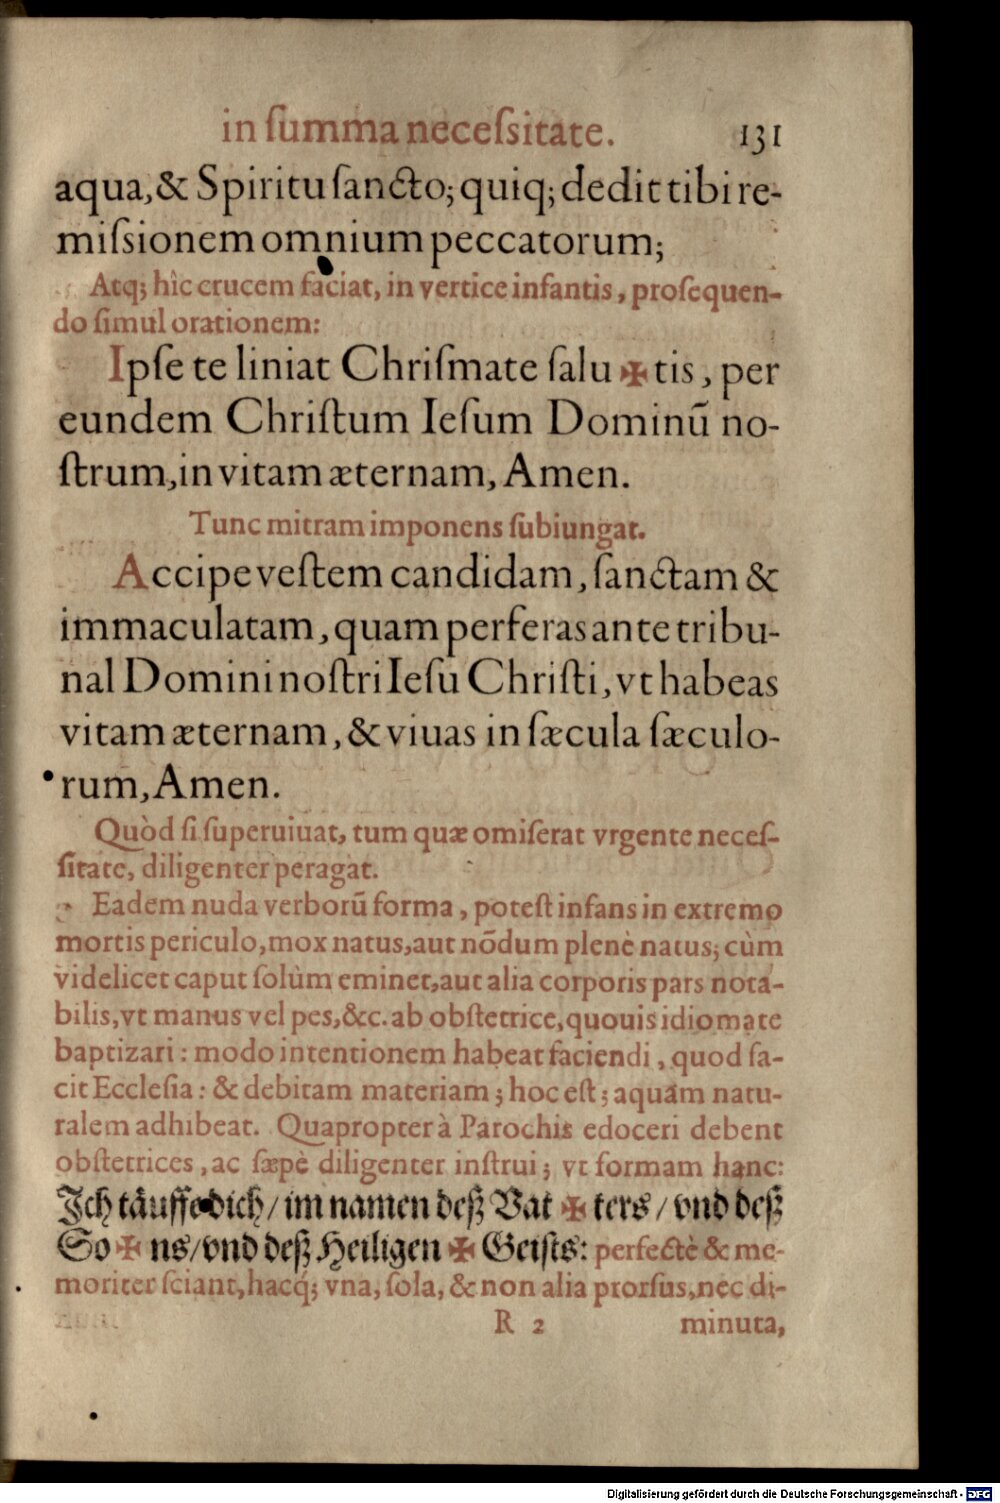 in ſumma neceſsitate. 131
aqua, & Spiritu ſancto; quiq; dedit tibi re-
miſsionem omnium peccatorum;
Atq; hìc crucem faciat, in vertice infantis, proſequen-
do ſimul orationem:
Ipſe te liniat Chriſmate ſalu ✠ tis, per
eundem Chriſtum Ieſum Dominū no-
ſtrum, in vitam æternam, Amen.
Tunc mitram imponens ſubiungat.
Accipe veſtem candidam, ſanctam &
immaculatam, quam perferas ante tribu-
nal Domini noſtri Ieſu Chriſti, vt habeas
vitam æternam, & viuas in ſæcula ſæculo-
rum, Amen.
Quòd ſi ſuperuiuat, tum quæ omiſerat vrgente neceſ-
ſitate, diligenter peragat.
Eadem nuda verborū forma, poteſt infans in extremo
mortis periculo, mox natus, aut nōdum plenè natus; cùm
videlicet caput ſolùm eminet, aut alia corporis pars nota-
bilis, vt manus vel pes, &c. ab obſtetrice, quouis idiomate
baptizari: modo intentionem habeat faciendi, quod fa-
cit Eccleſia: & debitam materiam; hoc eſt; aquam natu-
ralem adhibeat. Quapropter à Parochis edoceri debent
obſtetrices, ac ſæpè diligenter inſtrui; vt formam hanc:
Ich täuffe dich / im namen deß Vat ✠ ters / vnd deß
So ✠ ns / vnd deß Heiligen ✠ Geiſts: perfectè & me-
moriter ſciant, hacq́; vna, ſola, & non alia prorſus, nec di-
R 2 minuta,
Digitalisierung gefördert durch die Deutsche Forschungsgemeinschaft - DFG